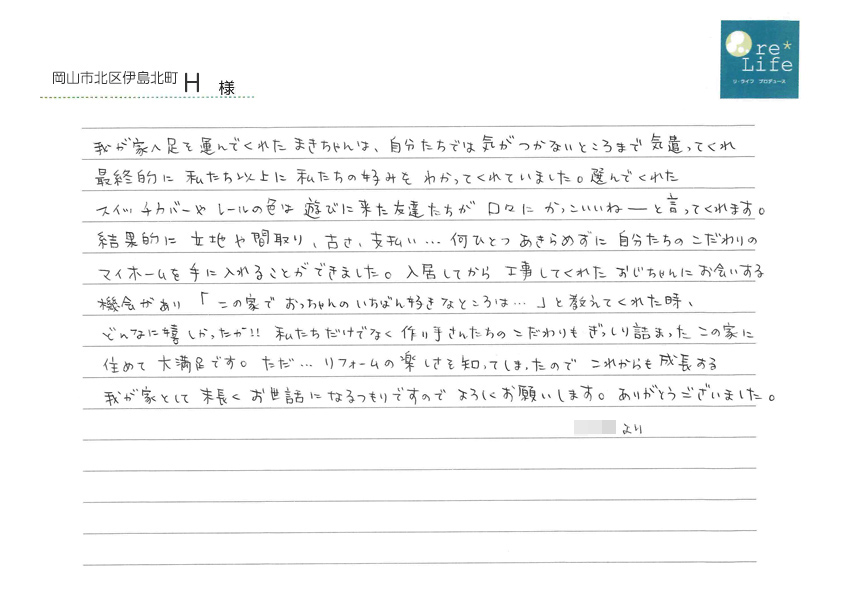 岡山市北区伊島北町 H 様
re*
Life
リ・ライフ プロデュース
我が家へ足を運んでくれた まきちゃんは、自分たちでは気がつかないところまで 気遣ってくれ
最終的に 私たち以上に 私たちの好みを わかってくれていました。選んでくれた
スイッチカバーや レールの色は 遊びに来た友達たちが 口々に かっこいいねーと言ってくれます。
結果的に 立地や間取り、古さ、支払い… 何ひとつ あきらめずに 自分たちのこだわりの
マイホームを手に入れることができました。入居してから 工事してくれた おじちゃんにお会いする
機会があり 「この家で おっちゃんのいちばん好きなところは…」と教えてくれた時、
どんなに嬉しかったか!! 私たちだけでなく 作り手さんたちのこだわりも ぎっしり詰まった この家に
住めて 大満足です。ただ… リフォームの楽しさを知ってしまったので これからも成長する
我が家として 末長く お世話になるつもりですので よろしくお願いします。ありがとうございました。
より